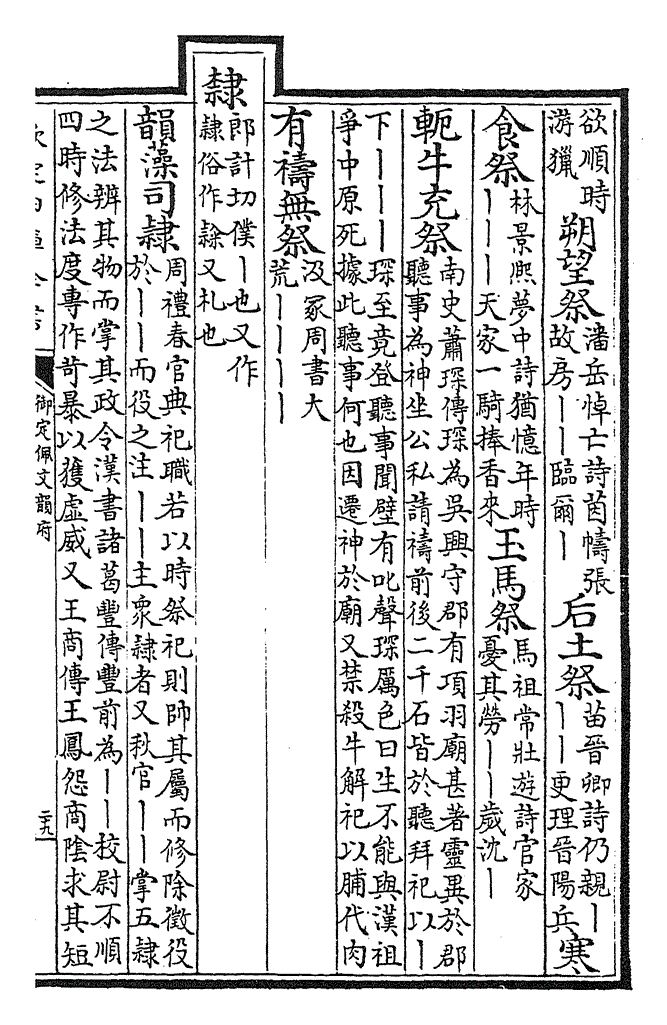 欲順時
游獵
朔望祭
潘岳悼亡詩茵幬張
故房丨丨臨爾丨
后土祭
苗晉卿詩仍親丨
丨丨更理晉陽兵
寒
食祭
林景熙夢中詩猶憶年時
丨丨丨天家一騎捧香來
玉馬祭
馬祖常壯遊詩官家
憂其勞丨丨歲沈丨
軛牛充祭
南史蕭琛傳琛為吳興守郡有項羽廟甚著靈異於郡
聽事為神坐公私請禱前後二千石皆於聽拜祀以丨
下丨丨丨琛至竟登聽事聞壁有叱聲琛厲色曰生不能與漢祖
爭中原死據此聽事何也因遷神於廟又禁殺牛解祀以脯代肉
有禱無祭
汲冢周書大
荒丨丨丨丨
隸
郎計切僕丨也又作
隷俗作𨽻又札也
韻藻司隸
周禮春官典祀職若以時祭祀則帥其屬而修除徵役
於丨丨而役之注丨丨主衆隸者又秋官丨丨掌五隸
之法辨其物而掌其政令漢書諸葛豐傳豐前為丨丨校尉不順
四時修法度專作苛暴以獲虛威又王商傳王鳳怨商陰求其短
御定佩文韻府